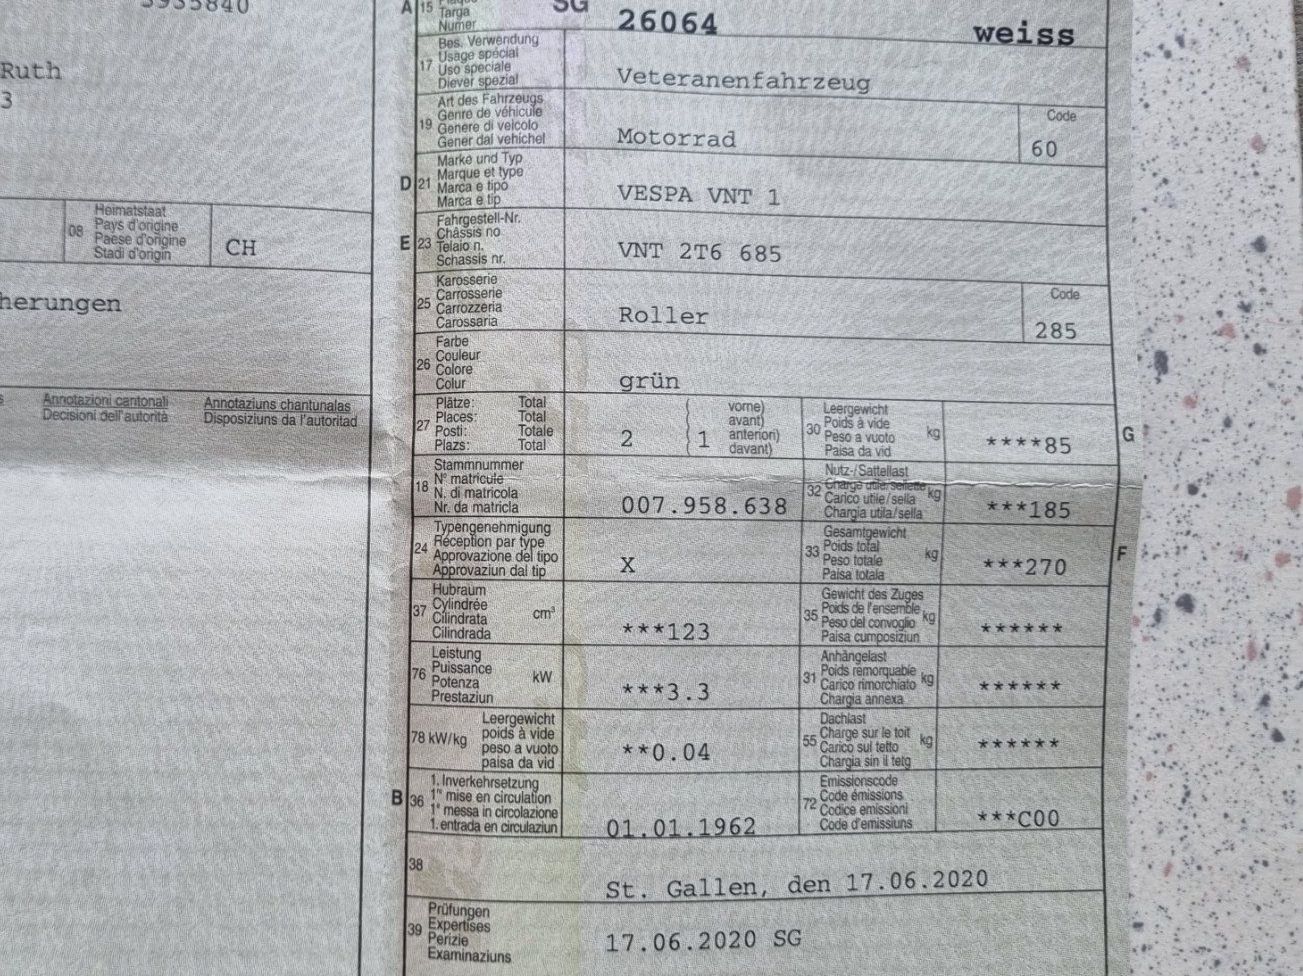 5935840
Ruth
3
08 Heimatstaat
Pays d'origine
Paese d'origine
Stadi d'origin
CH
herungen
s Annotazioni cantonali Annotaziuns chantunalas
Decisioni dell'autorità Disposiziuns da l'autoritad
A 15 Targa
Numer
SG 26064 weiss
17 Bes. Verwendung
Usage spécial
Uso speciale
Diever spezial
Veteranenfahrzeug
19 Art des Fahrzeugs
Genre de véhicule
Genere di veicolo
Gener dal vehichel
Motorrad
Code
60
D 21 Marke und Typ
Marque et type
Marca e tipo
Marca e tip
VESPA VNT 1
E 23 Fahrgestell-Nr.
Châssis no
Telaio n.
Schassis nr.
VNT 2T6 685
25 Karosserie
Carrosserie
Carrozzeria
Carossaria
Roller
Code
285
26 Farbe
Couleur
Colore
Colur
grün
27 Plätze: Total
Places: Total
Posti: Totale
Plazs: Total
2 ( 1 vorne)
avant)
anteriori)
davant)
30 Leergewicht
Poids à vide
Peso a vuoto
Paisa da vid
kg
****85
G
18 Stammnummer
N° matricule
N. di matricola
Nr. da matricla
007.958.638
32 Nutz-/Sattellast
Charge utile/sellette
Carico utile/sella
Chargia utila/sella
kg
***185
24 Typengenehmigung
Réception par type
Approvazione del tipo
Approvaziun dal tip
X
33 Gesamtgewicht
Poids total
Peso totale
Paisa totala
kg
***270
F
37 Hubraum
Cylindrée
Cilindrata
Cilindrada
cm³
***123
35 Gewicht des Zuges
Poids de l'ensemble
Peso del convoglio
Paisa cumposiziun
kg
******
76 Leistung
Puissance
Potenza
Prestaziun
kW
***3.3
31 Anhängelast
Poids remorquable
Carico rimorchiato
Chargia annexa
kg
******
78 kW/kg Leergewicht
poids à vide
peso a vuoto
paisa da vid
**0.04
55 Dachlast
Charge sur le toit
Carico sul tetto
Chargia sin il tetg
kg
******
B 36 1. Inverkehrsetzung
1re mise en circulation
1a messa in circolazione
1. entrada en circulaziun
01.01.1962
72 Emissionscode
Code émissions
Codice emissioni
Code d'emissiuns
***C00
38
St. Gallen, den 17.06.2020
39 Prüfungen
Expertises
Perizie
Examinaziuns
17.06.2020 SG